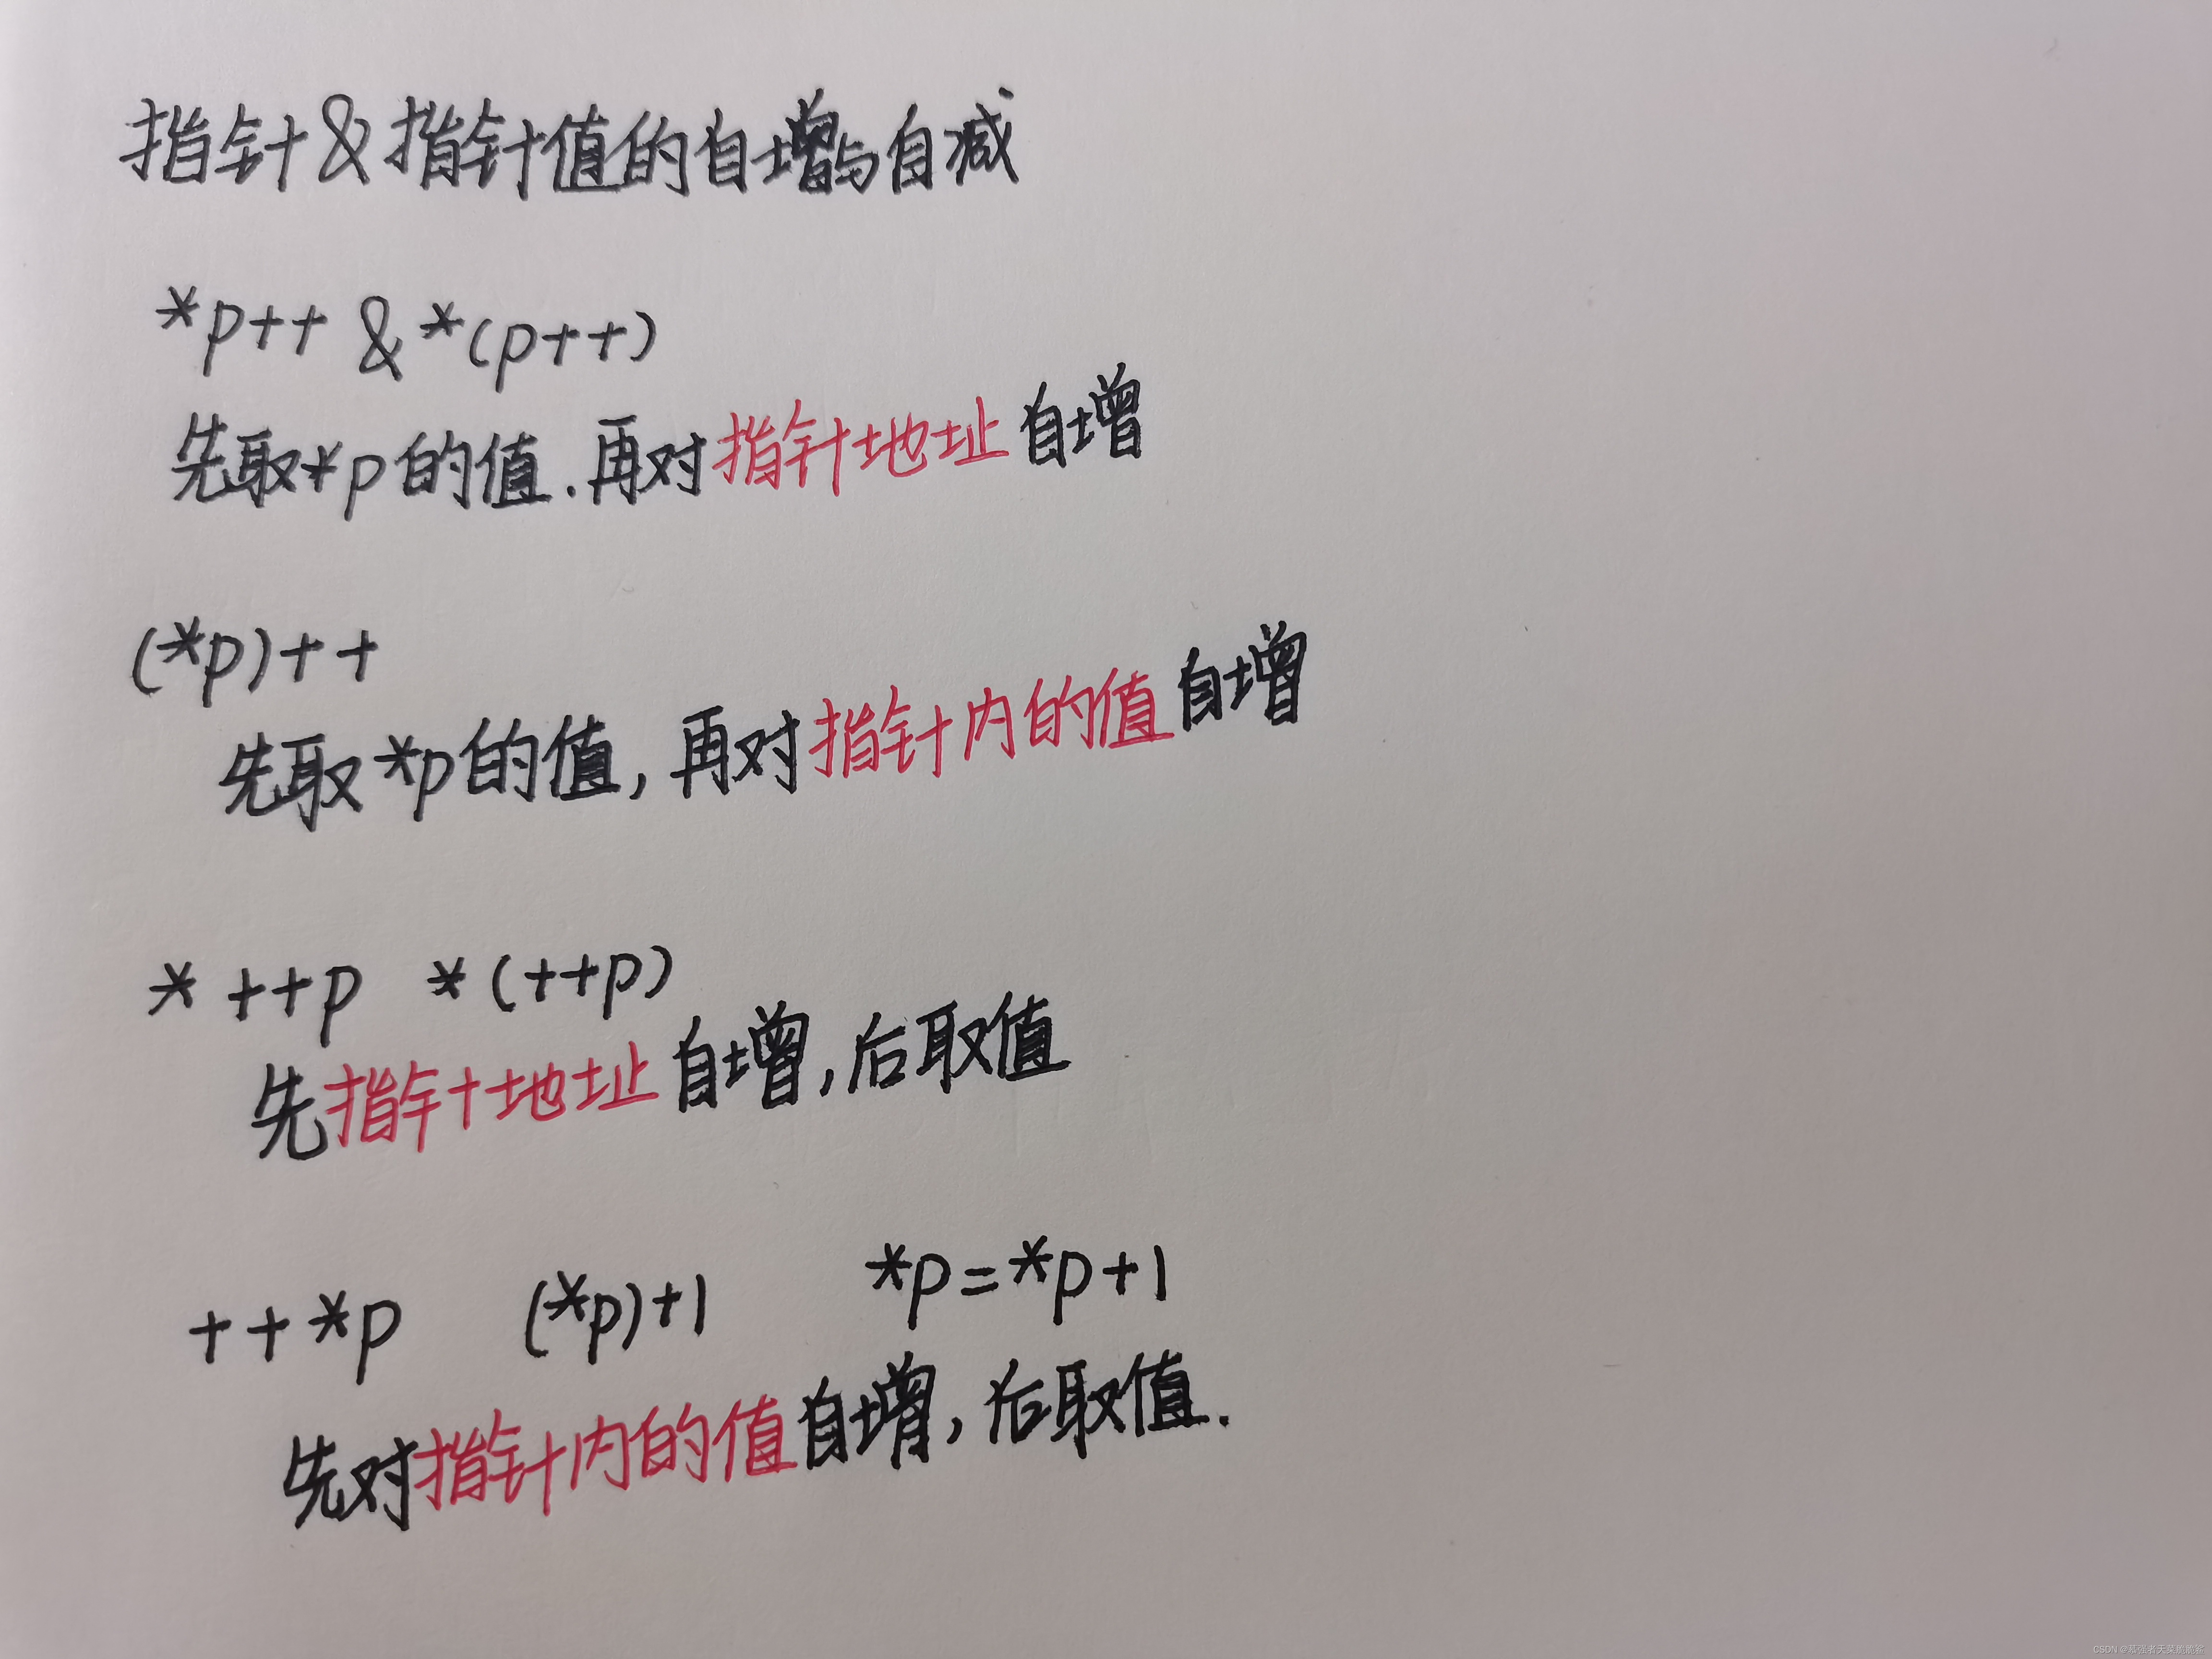 指针&指针值的自增与自减
*p++ & *(p++)
先取*p的值.再对指针地址自增
(*p)++
先取*p的值,再对指针内的值自增
* ++p *(++p)
先指针地址自增,后取值
++*p (*p)+1 *p=*p+1
先对指针内的值自增,后取值.
CSDN